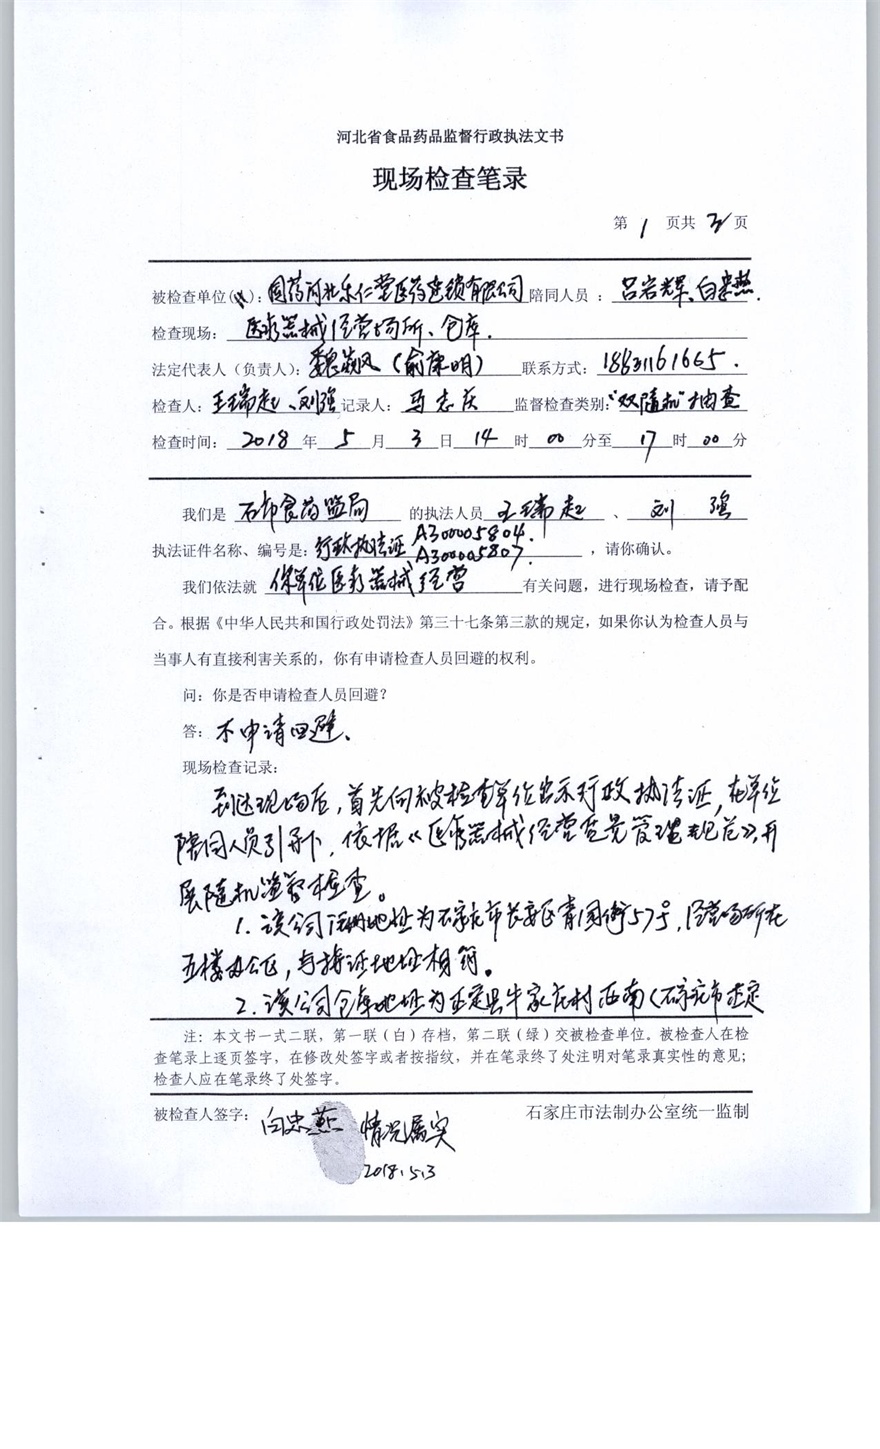 河北省食品药品监督行政执法文书
现场检查笔录
第 1 页共 3 页
被检查单位(人)：国药河北乐仁堂医药连锁有限公司 陪同人员 ： 吕岩辉、白忠燕.
检查现场： 医疗器械经营场所、仓库.
法定代表人（负责人）： 魏 风（俞康明） 联系方式：18631161665.
检查人：王瑞起、刘强 记录人：马志友 监督检查类别："双随机"抽查
检查时间： 2018 年 5 月 3 日 14 时 00 分至 17 时 00 分
我们是 石市食药监局 的执法人员 王瑞起 、 刘强
A30005804.
执法证件名称、编号是：行政执法证 A30005807. ，请你确认。
我们依法就 你单位医疗器械经营 有关问题，进行现场检查，请予配
合。根据《中华人民共和国行政处罚法》第三十七条第三款的规定，如果你认为检查人员与
当事人有直接利害关系的，你有申请检查人员回避的权利。
问：你是否申请检查人员回避？
答： 不申请回避、
现场检查记录：
到达现场后，首先向被检查单位出示行政执法证，在单位
陪同人员引导下，依据《医疗器械经营质量管理规范》，开
展随机监督检查。
1. 该公司注册地址为石家庄市长安区青园街57号，经营场所在
五楼办公区，与持证地址相符。
2. 该公司仓库地址为正定县牛家庄村西南（石家庄市正定
注：本文书一式二联，第一联（白）存档，第二联（绿）交被检查单位。被检查人在检
查笔录上逐页签字，在修改处签字或者按指纹，并在笔录终了处注明对笔录真实性的意见；
检查人应在笔录终了处签字。
被检查人签字： 白忠燕 情况属实 石家庄市法制办公室统一监制
2018.5.3